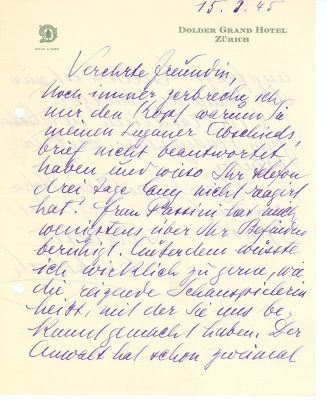 15. 8. 45
GOLF LINKS
DOLDER GRAND HOTEL
ZÜRICH
Verehrte Freundin,
Noch immer zerbreche ich
mir den Kopf, warum Sie
meinen Luganer Abschieds
brief nicht beantwortet
haben und wieso Ihr Telefon
drei Tage lang nicht reagiert
hat. Frau Passini hat mich
wenigstens über Ihr Befinden
beruhigt. Außerdem wüsste
ich wirklich zu gerne, wie
die reizende Schauspielerin
heißt, mit der Sie uns be-
kanntgemacht haben. Der
Anwalt hat schon zweimal